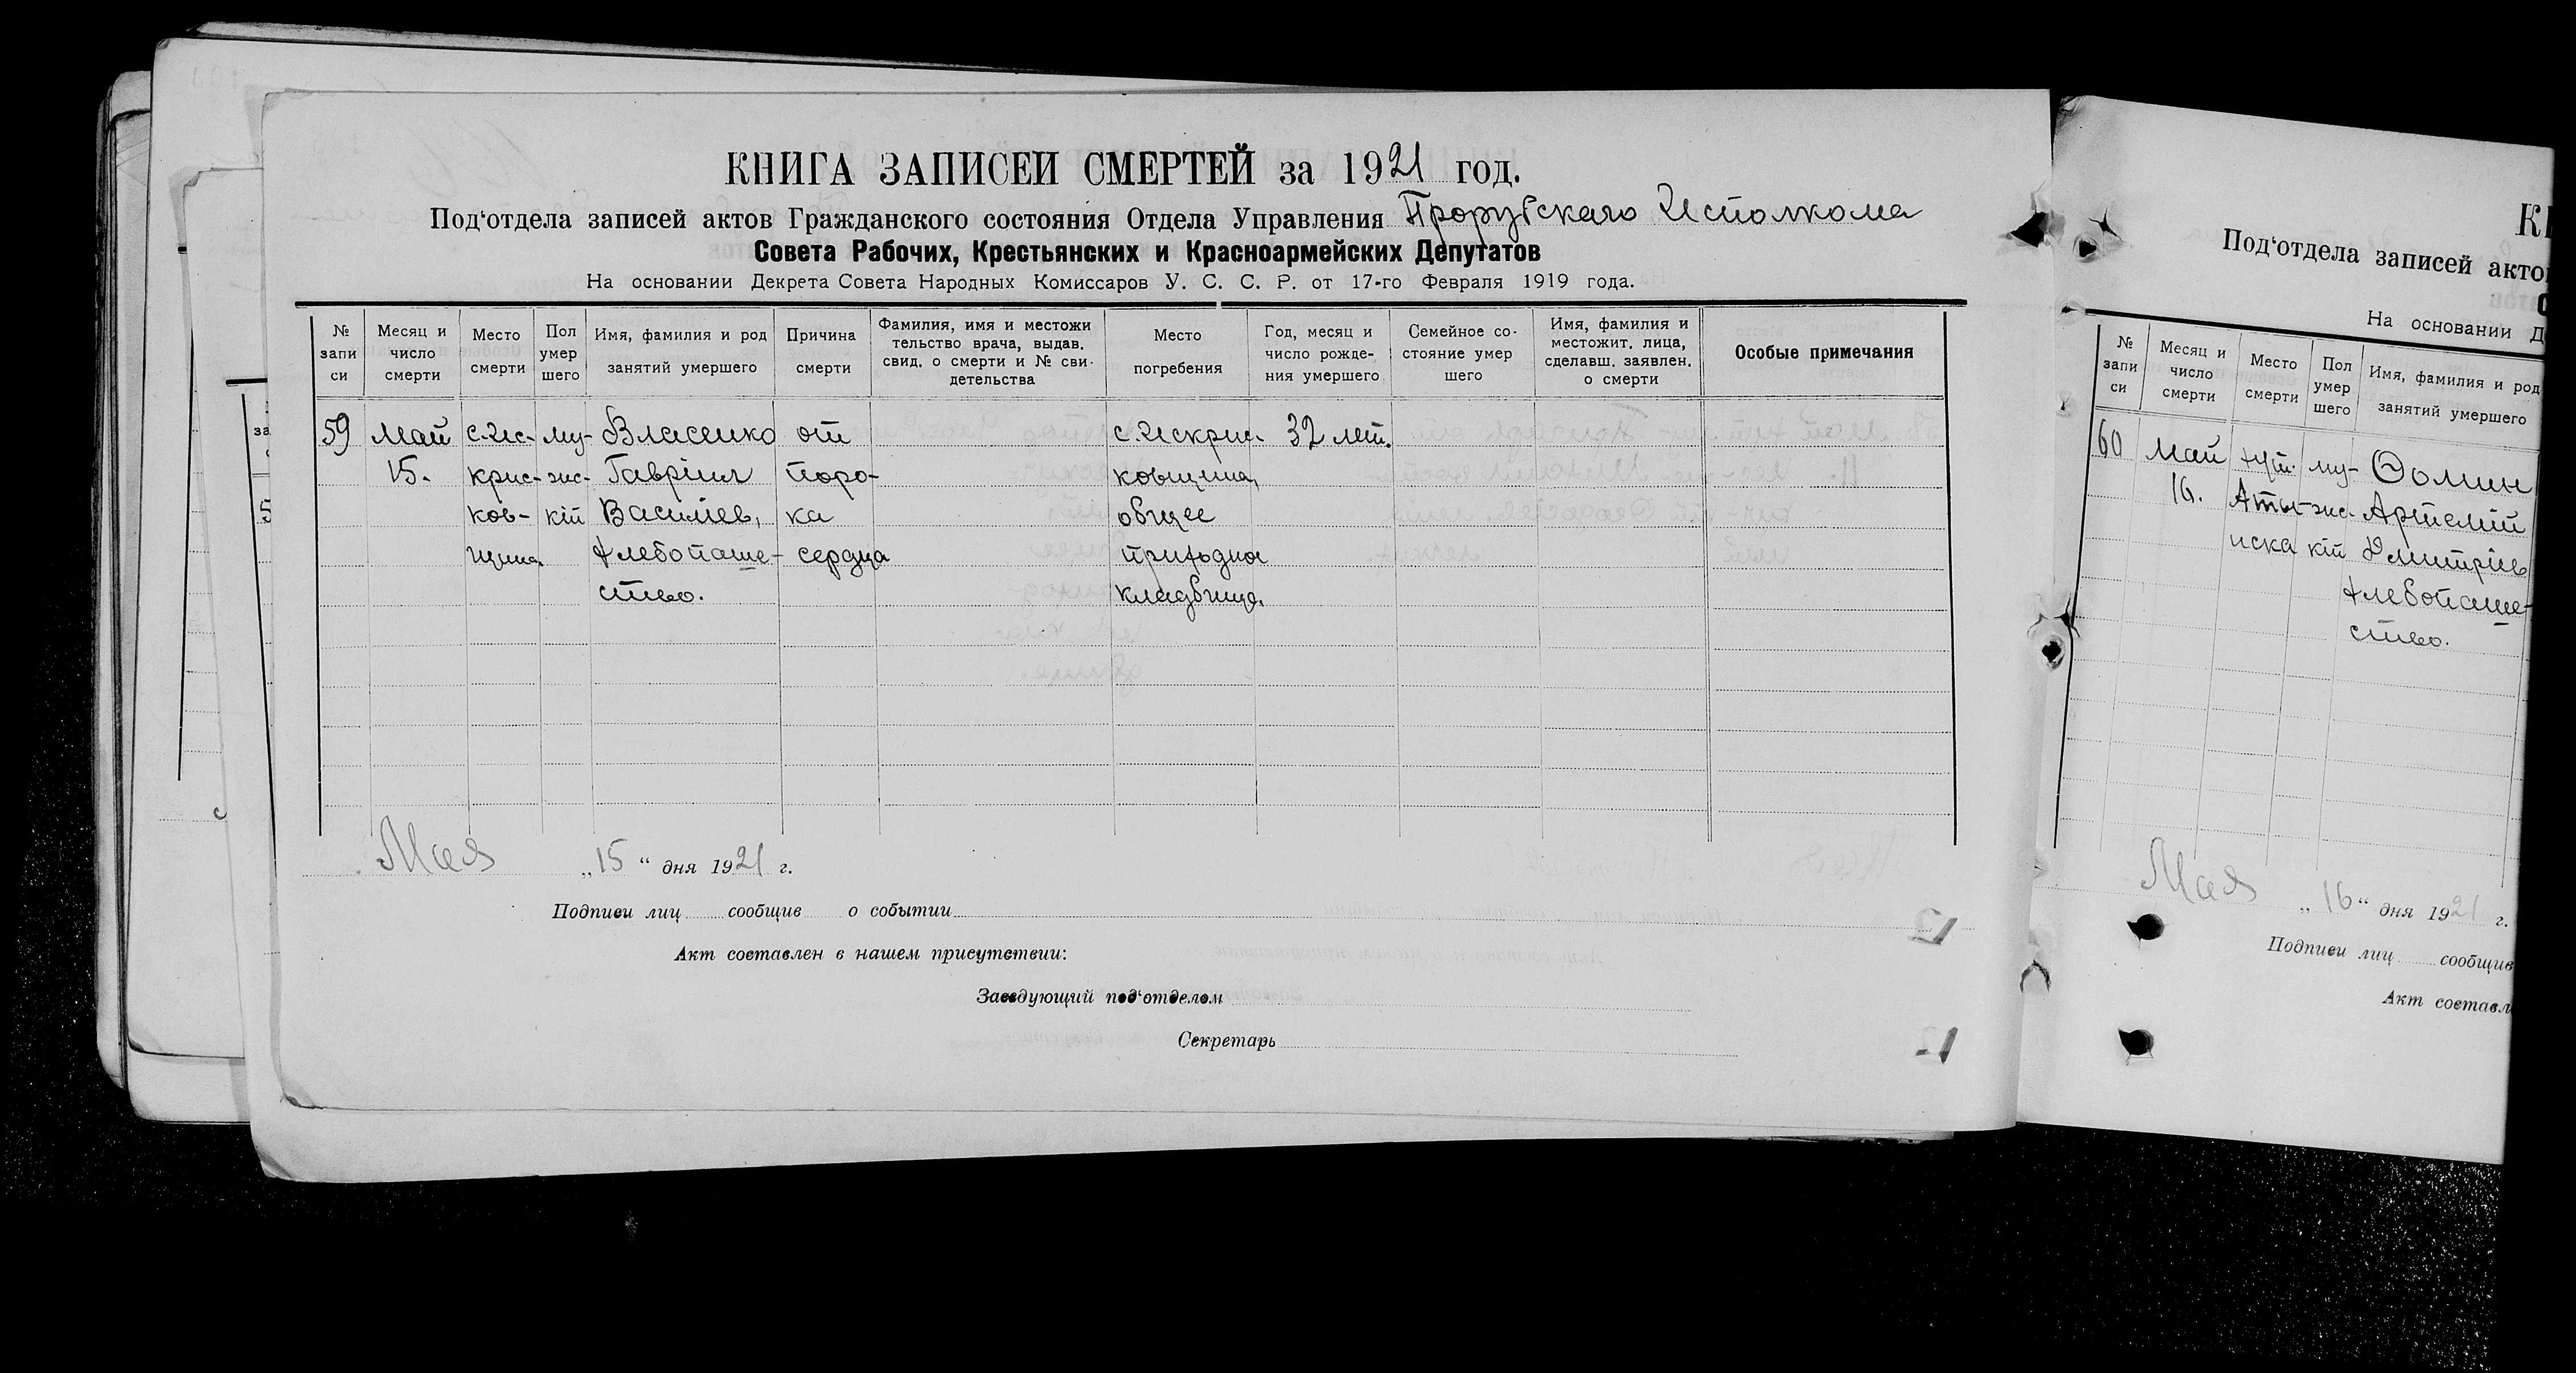 КНИГА ЗАПИСЕЙ СМЕРТЕЙ за 1921 год.
Под‘отдела записей актов Гражданского состояния Отдела Управления Прорубскаго Исполкома
Совета Рабочих, Крестьянских и Красноармейских Депутатов
На основании Декрета Совета Народных Комиссаров У. С. С. Р. от 17-го Февраля 1919 года.
№ запи си
Месяц и число смерти
Место смерти
Пол умер шего
Имя, фамилия и род занятий умершего
Причина смерти
Фамилия, имя и местожи тельство врача, выдав. свид. о смерти и № сви- детельства
Место погребения
Год, месяц и число рожде- ния умершего
Семейное со- стояние умер шего
Имя, фамилия и местожит. лица, сделавш. заявлен. о смерти
Особые примечания
59 Май с. Ис- му- Власенко от с. Искрис- 32 лет.
15. крис- жс- Гавріил поро- ковщина,
ков- кій Васильев, ка общее
щина. хлебопаше- сердца приходное
ство. кладбище.
Мая „15“ дня 1921 г.
Подписи лиц сообщив о событии
Акт составлен в нашем присутствии:
Заведующий под‘отделом
Секретарь
КН
Под‘отдела записей акто
С
На основании Д
№ запи си
Месяц и число смерти
Место смерти
Пол умер шего
Имя, фамилия и род занятий умершего
60 Май хут. му- Фомин
16. Аты- жс- Артемій
нска кій Дмитріев
хлебопаше-
ство.
Мая „16“ дня 1921 г.
Подписи лиц сообщив
Акт составл
за
5